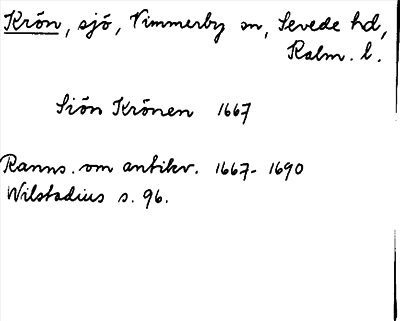 Krön, sjö, Vimmerby sn, Sevede hd,
Kalm. l.
Siön Krönen 1667
Ranns. om antikv. 1667-1690
Wilstadius s. 96.